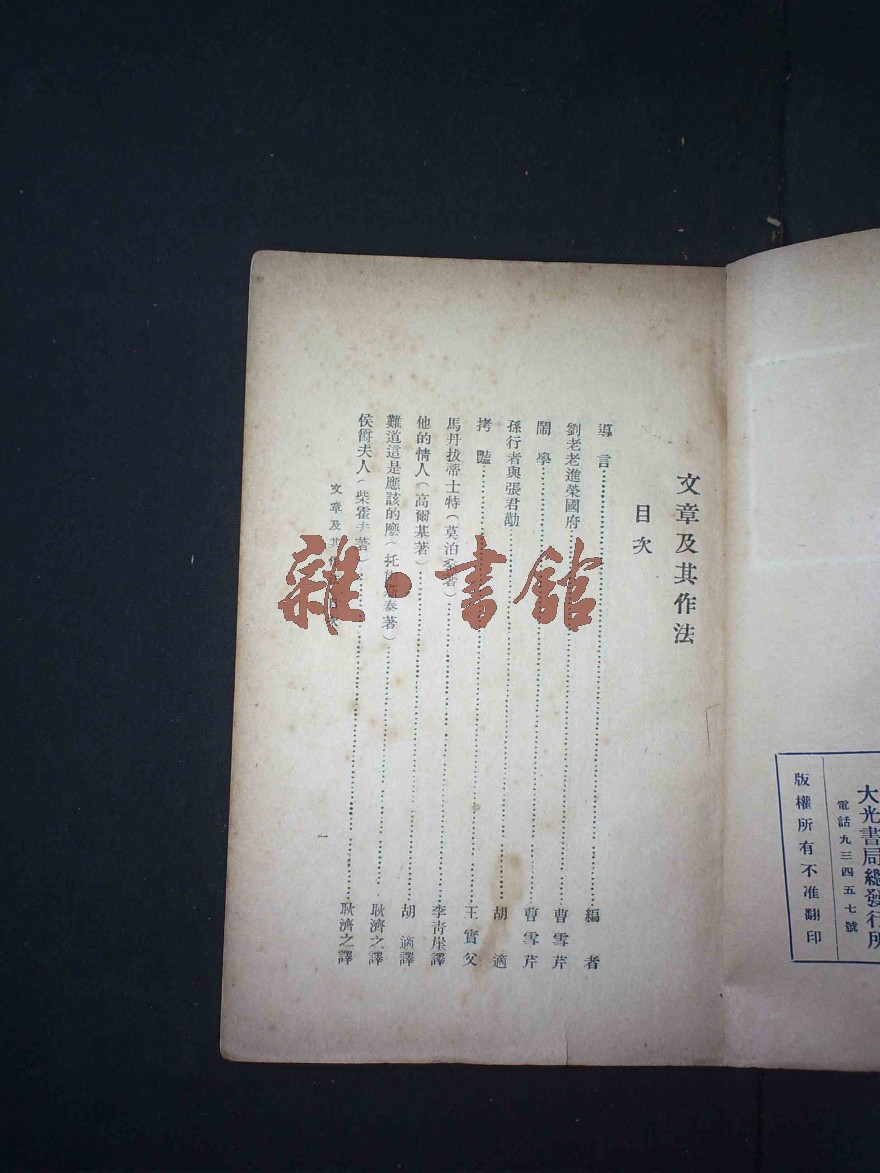 大光書局總發行所
電話九三四五七號
版權所有不准翻印
文章及其作法
目次
導言 編者
劉老老進榮國府 曹雪芹
鬧學 曹雪芹
孫行者與張君勱 胡適
拷豔 王實父
馬丹拔蒂士特(莫泊著) 李青崖譯
他的情人(高爾基著) 胡適譯
難道這是應該的麼(托斯泰著) 耿濟之譯
侯爵夫人(柴霍夫著) 耿濟之譯
文章及其作 次
一
雜·書館